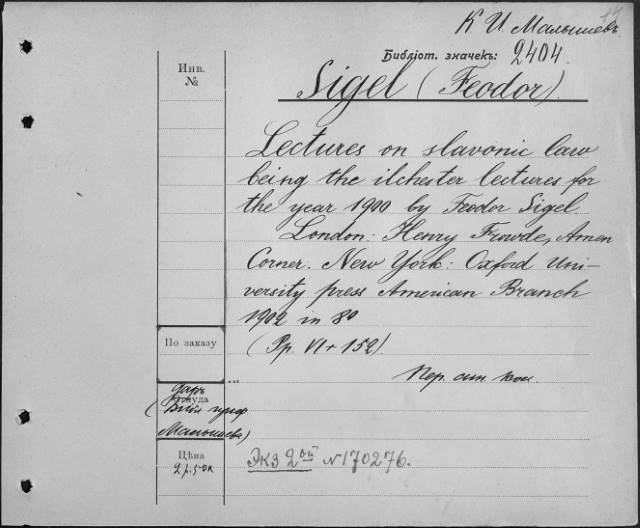 К. И. Малышевъ
Библіот. значекъ: 2404.
Инв.
№
Sigel (Feodor).
Lectures on slavonic law
being the ilchester lectures for
the year 1900 by Feodor Sigel.
London: Henry Frowde, Amen
Corner. New York: Oxford Uni-
versity press American Branch
1902 in 8º
(Pp. VI + 152).
По заказу
Пер. син. кол.
даръ
Откуда
(Библ. проф.
Малышева)
Цѣна
2 р. 50 к
Экз 2ой № 170276.